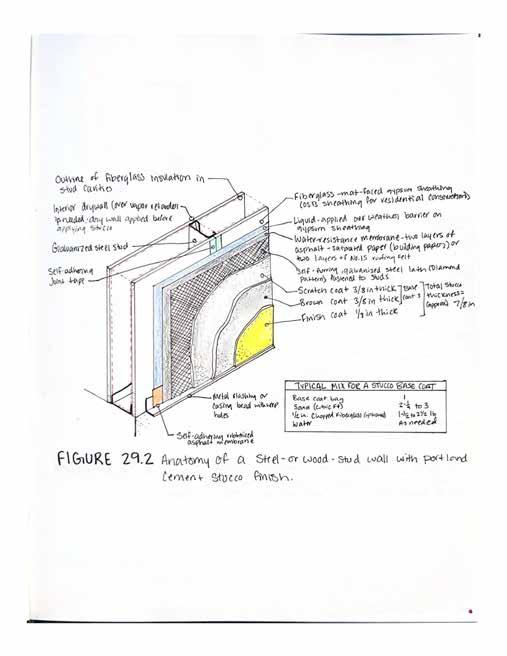 Outline of Fiberglass Insulation in
stud cavities
Interior drywall (over vapor retarder
if needed - dry wall applied before
applying stucco
Galvanized steel stud
Self-adhering
Joint tape
Fiberglass-mat-faced gypsum sheathing
(OSB sheathing for residential construction)
Liquid-applied air weather barrier on
gypsum sheathing
Water-resistance membrane-two layers of
asphalt-saturated paper (building papers) or
two layers of No.15 roofing felt
Self-furring galvanized steel lath (Diamond
pattern) fastened to studs
Scratch coat 3/8 in thick
Brown coat 3/8 in thick
Base
coat s
Total stucco
thickness =
(approx) 7/8 in
Finish coat 1/8 in thick
Metal flashing or
casing bead with weep
holes
Self-adhering
asphalt membrane
TYPICAL MIX FOR A STUCCO BASE COAT
Base coat bag 1
Sand (cubic ft) 2-1/4 to 3
1/2 in. Chopped Fiberglass (optional) 1-1/2 to 2 1/2 lb
Water As needed
FIGURE 29.2 Anatomy of a Steel-or wood-stud wall with portland
Cement Stucco finish.